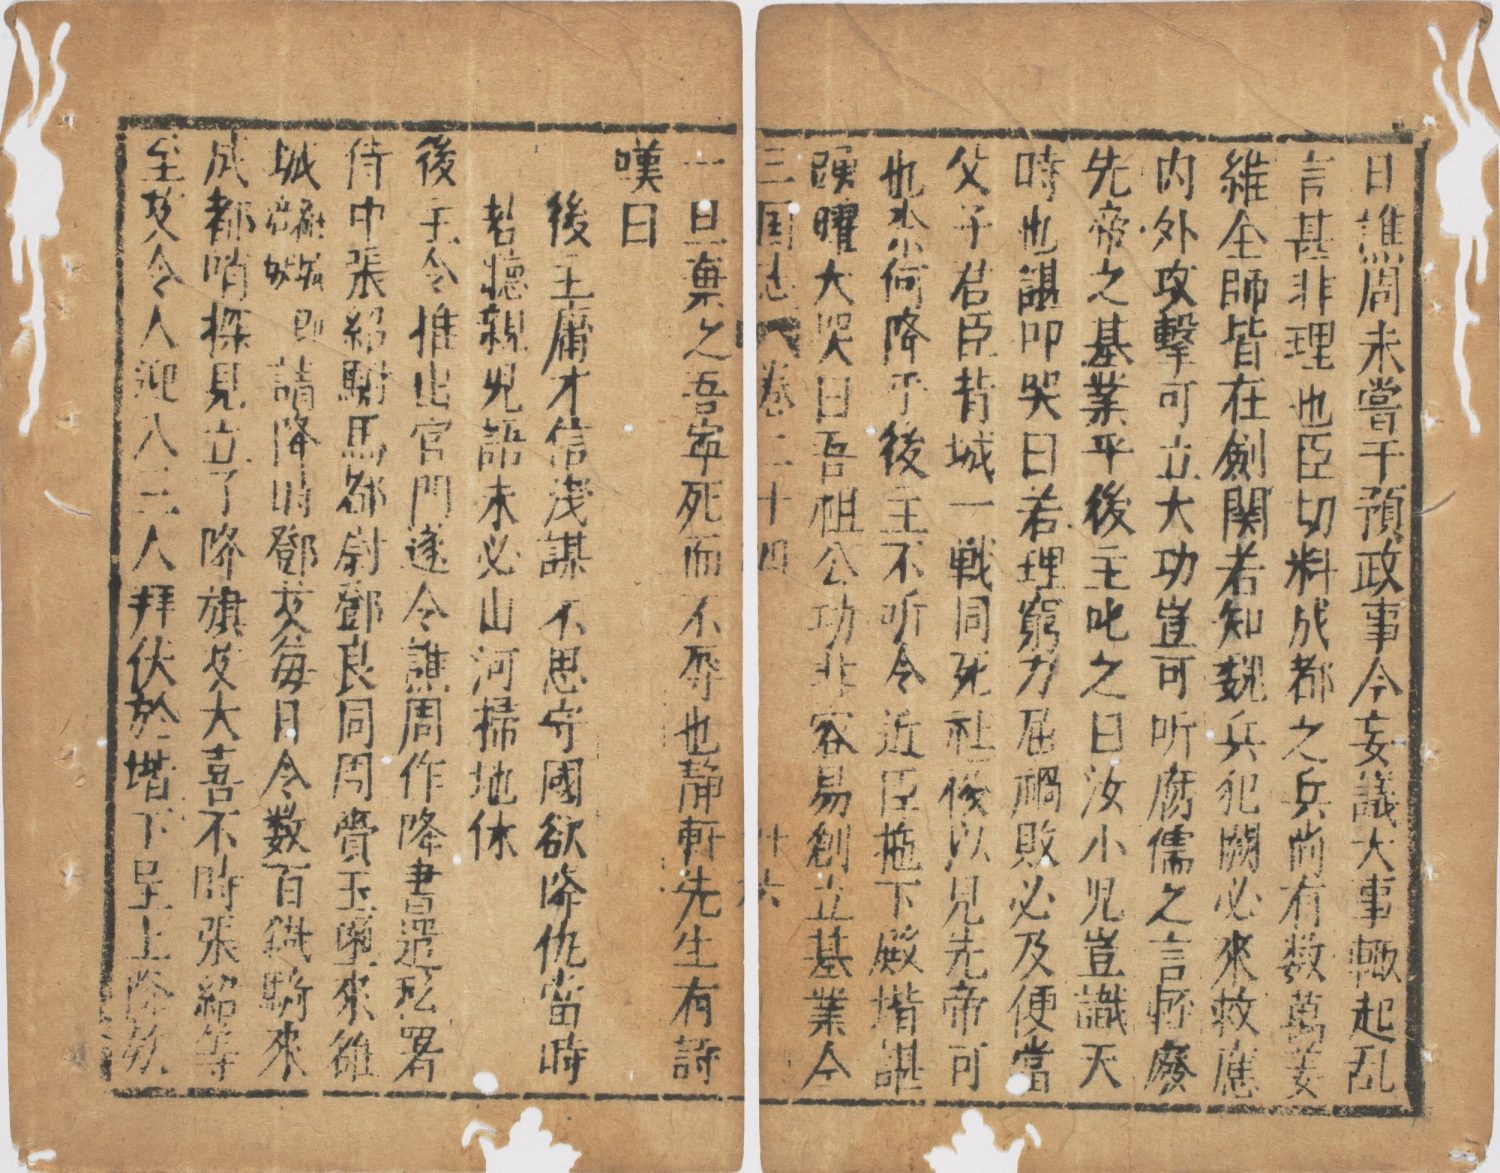 日譙周未嘗干預政事今妄議大事輙起乱
言甚非理也臣切料成都之兵尚有数萬姜
維全師皆在劍関若知魏兵犯闕必來救應
内外攻擊可立大功豈可听腐儒之言輕廢
先帝之基業乎後主叱之曰汝小児豈識天
時也諶叩哭曰若理窮力屈禍敗必及便當
父子君臣背城一戦同死社稷以見先帝可
也奈何降乎後主不听令近臣拖下殿堦諶
踴曜大哭曰吾祖公功非容易創立基業今
三国志 卷二十四 廿六
一旦棄之吾寕死而不辱也静軒先生有詩
嘆曰
後主庸才信淺謀不思守國欲降仇當時
若聴親児語未必山河掃地休
後主令推出宮門遂令譙周作降書遣私署
侍中張紹駙馬都尉鄧良同周賫玉璽來雒
城 即請降時鄧艾每日令数百鐵騎來
成都哨探見立了降旗艾大喜不時張紹等
至艾令人迎入三人拜伏於堦下呈上降欵